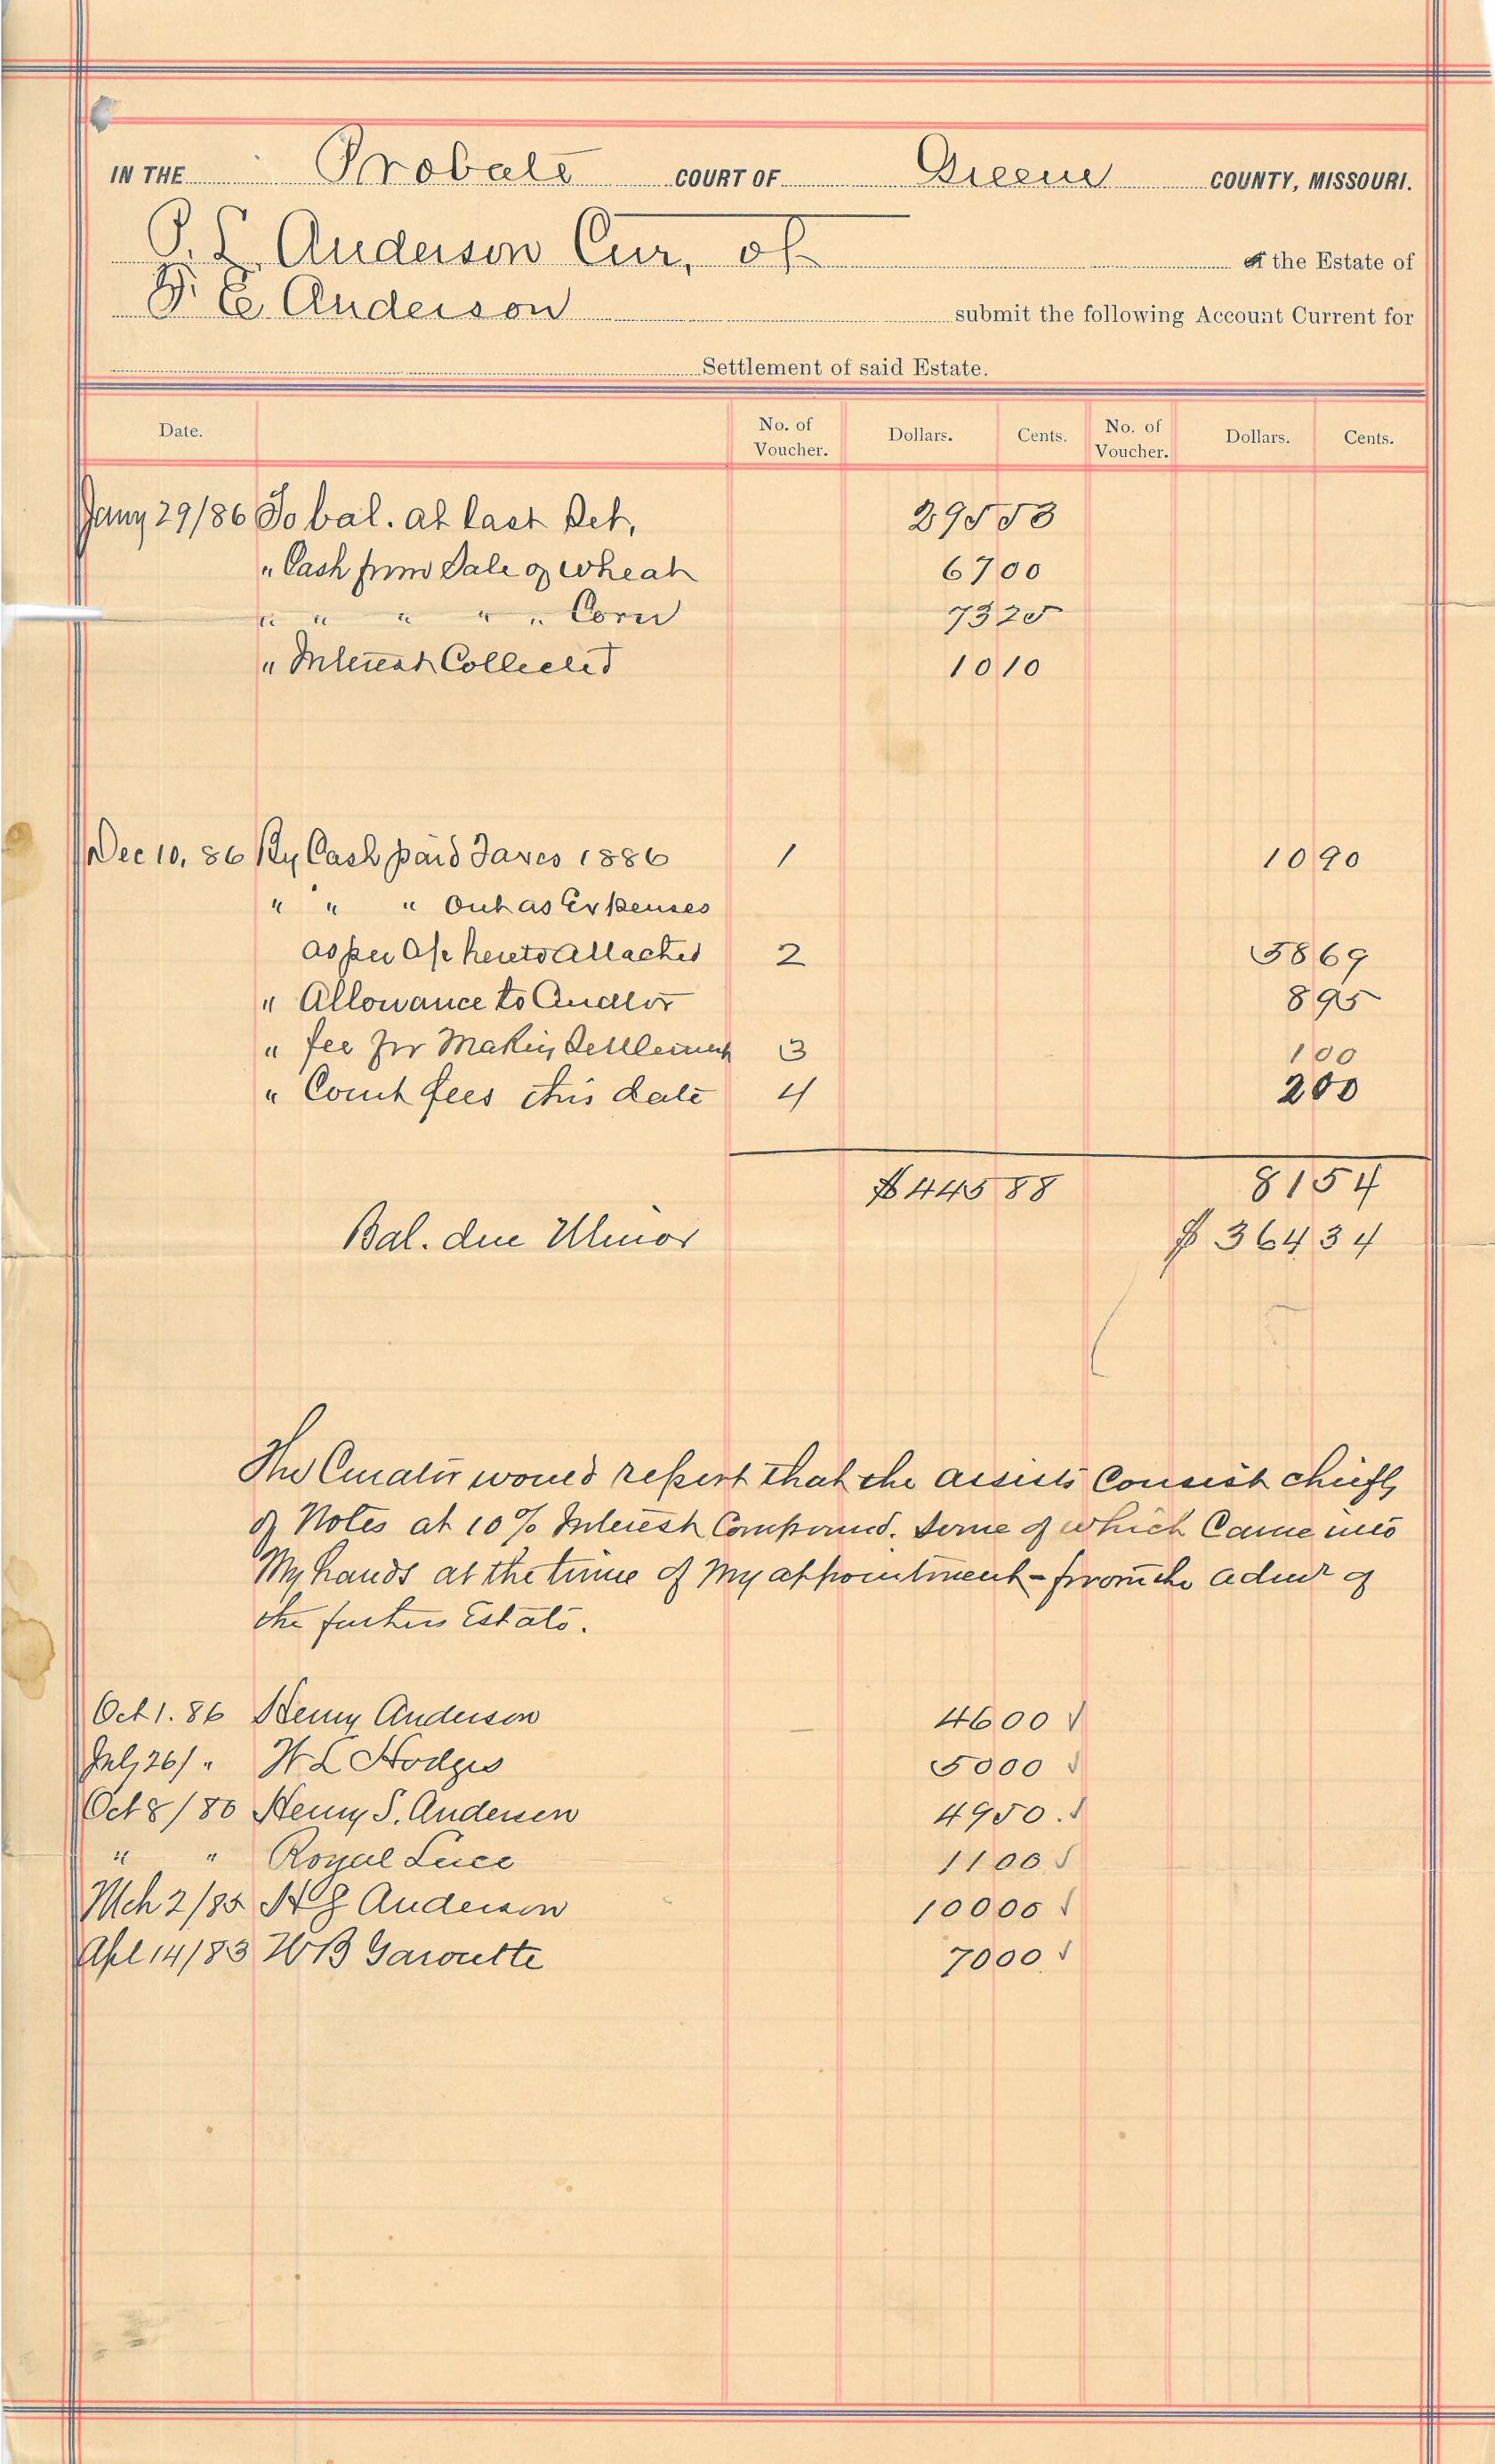 IN THE Probate COURT OF Greene COUNTY, MISSOURI.
P. L. Anderson Cur, of of the Estate of
E Anderson submit the following Account Current for
Settlement of said Estate.
Date. No. of Voucher. Dollars. Cents. No. of Voucher. Dollars. Cents.
Jany 29/86 To bal. at last Set, 295 53
" Cash from Sale of Wheat 67 00
" " " " " Corn 73 25
" Interest Collected 10 10
Dec 10, 86 By Cash paid Taxes 1886 1 10 90
" " " Out as Expenses
as per a/c hereto attached 2 58 69
" Allowance to Curator 8 95
" fee for Making Settlement 3 1 00
" Court fees this date 4 2 00
$445 88 81 54
Bal. due Minor $ 364 34
The Curator would report that the assists Consist chiefly
of Notes at 10% Interest Compound. Some of which Came into
My hands at the time of My appointment - from the admr of
the Estate.
Oct 1. 86 Henry Anderson 46 00
July 26/ " H L Hodges 50 00
Oct 8/86 Henry S. Anderson 49 50.
" " Royal Luce 11 00
Mch 2/85 H G Anderson 100 00
Apl 14/83 W B Garoutte 70 00